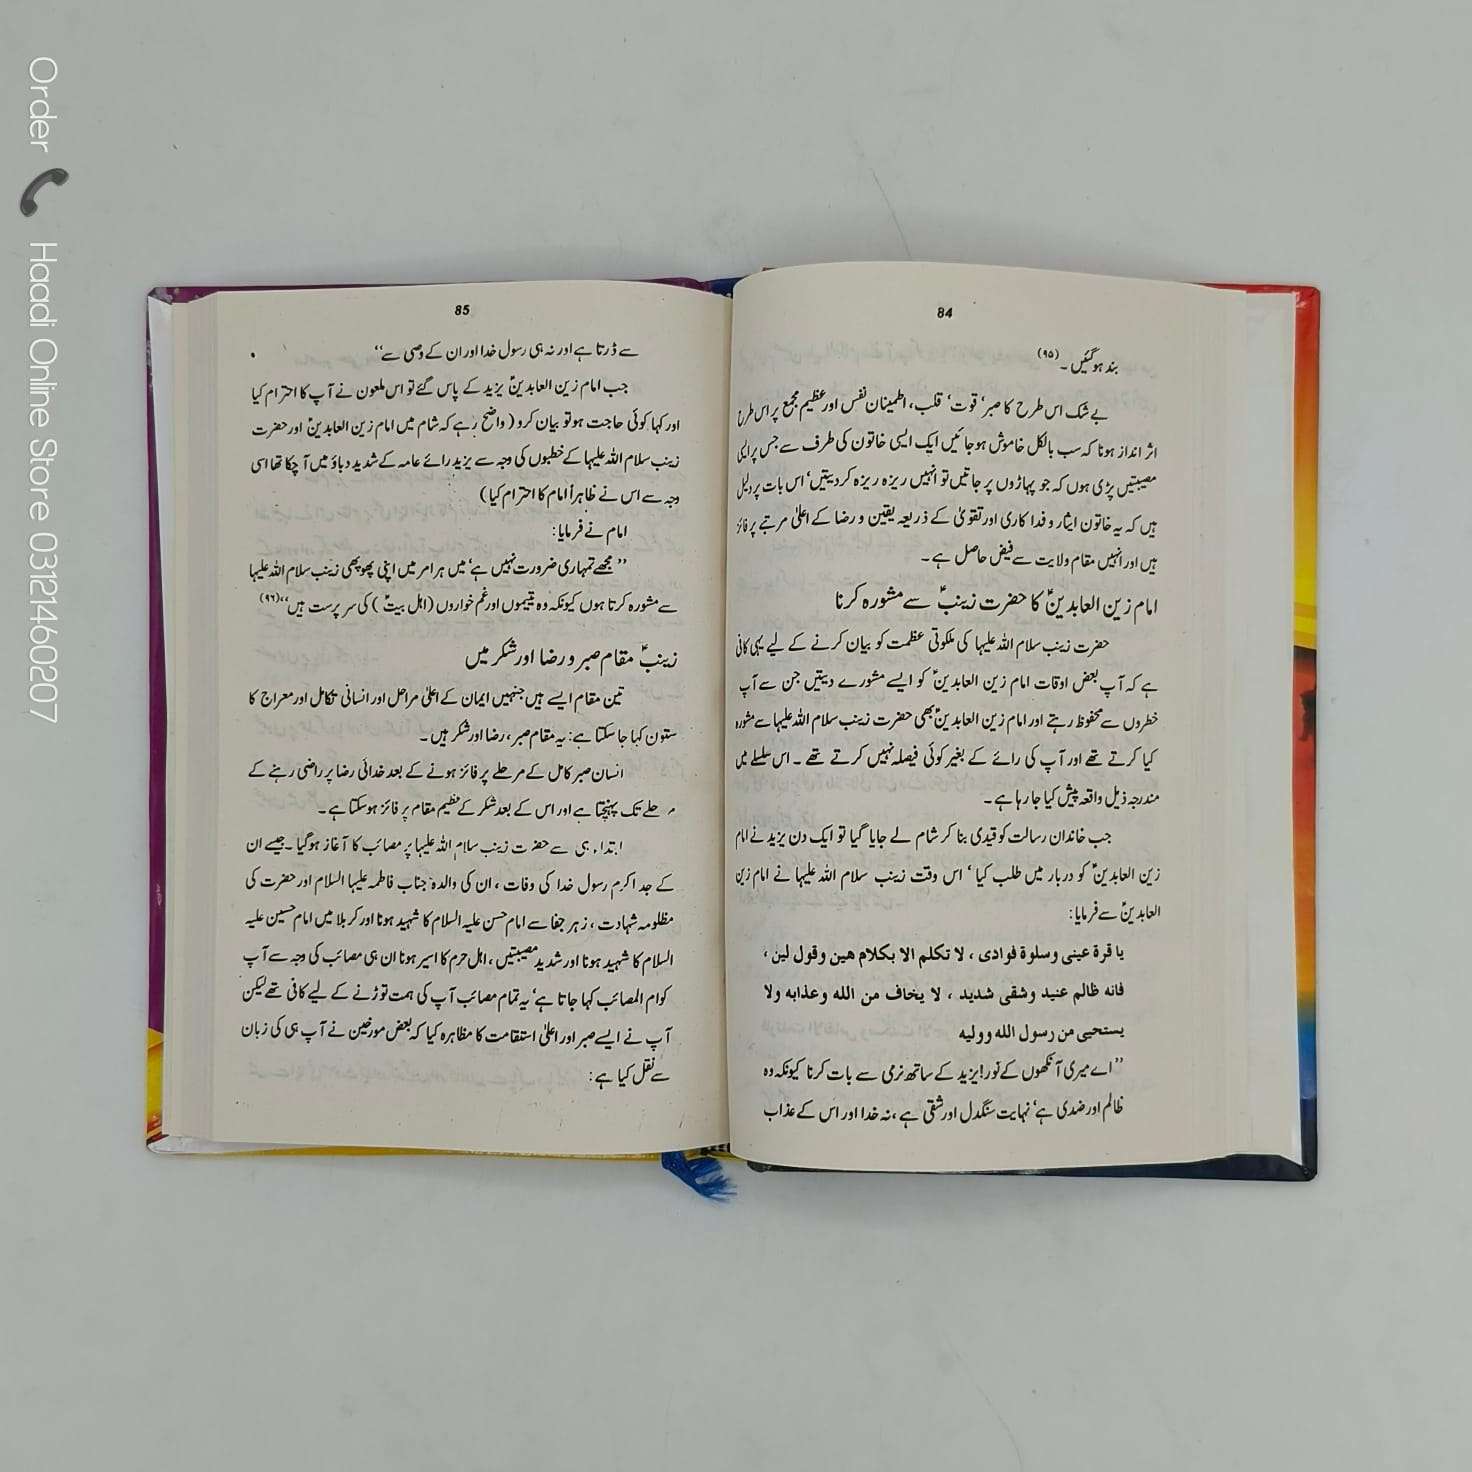 Order Haadi Online Store 03121460207
84
بند ہوگئیں۔ (۹۵)
بے شک اس طرح کا صبر‘ قوت‘ قلب، اطمینان نفس اور عظیم مجمع پر اس طرح
اثر انداز ہونا کہ سب بالکل خاموش ہوجائیں ایک ایسی خاتون کی طرف سے جس پر ایسی
مصیبتیں پڑی ہوں کہ جو پہاڑوں پر جاتیں تو انہیں ریزہ ریزہ کردیتیں‘ اس بات پر دلیل
ہیں کہ یہ خاتون ایثار و فداکاری اور تقویٰ کے ذریعہ یقین و رضا کے اعلیٰ مرتبے پر فائز
ہیں اور انہیں مقام ولایت سے فیض حاصل ہے۔
امام زین العابدینؑ کا حضرت زینبؑ سے مشورہ کرنا
حضرت زینب سلام اللہ علیہا کی ملکوتی عظمت کو بیان کرنے کے لیے یہی کافی
ہے کہ آپ بعض اوقات امام زین العابدینؑ کو ایسے مشورے دیتیں جن سے آپ
خطروں سے محفوظ رہتے اور امام زین العابدینؑ بھی حضرت زینب سلام اللہ علیہا سے مشورہ
کیا کرتے تھے اور آپ کی رائے کے بغیر کوئی فیصلہ نہیں کرتے تھے۔ اس سلسلے میں
مندرجہ ذیل واقعہ پیش کیا جا رہا ہے۔
جب خاندان رسالت کو قیدی بنا کر شام لے جایا گیا تو ایک دن یزید نے امام
زین العابدینؑ کو دربار میں طلب کیا‘ اس وقت زینب سلام اللہ علیہا نے امام زین
العابدینؑ سے فرمایا:
یا قرة عینی وسلوة فوادی ، لا تکلم الا بکلام هین وقول لین ،
فانه ظالم عنید وشقی شدید ، لا یخاف من الله وعذابه ولا
یستحیی من رسول الله وولیه
”اے میری آنکھوں کے نور! یزید کے ساتھ نرمی سے بات کرنا کیونکہ وہ
ظالم اور ضدی ہے‘ نہایت سنگدل اور شقی ہے، نہ خدا اور اس کے عذاب
85
سے ڈرتا ہے اور نہ ہی رسول خدا اور ان کے وصی سے“
جب امام زین العابدینؑ یزید کے پاس گئے تو اس ملعون نے آپ کا احترام کیا
اور کہا کوئی حاجت ہو تو بیان کرو (واضح رہے کہ شام میں امام زین العابدینؑ اور حضرت
زینب سلام اللہ علیہا کے خطبوں کی وجہ سے یزید رائے عامہ کے شدید دباؤ میں آچکا تھا اسی
وجہ سے اس نے ظاہراً امام کا احترام کیا)
امام نے فرمایا:
”مجھے تمہاری ضرورت نہیں ہے‘ میں ہر امر میں اپنی پھوپھی زینب سلام اللہ علیہا
سے مشورہ کرتا ہوں کیونکہ وہ یتیموں اور غم خواروں (اہل بیتؑ) کی سرپرست ہیں“(۹۶)
زینبؑ مقام صبر و رضا اور شکر میں
تین مقام ایسے ہیں جنہیں ایمان کے اعلیٰ مراحل اور انسانی تکامل اور معراج کا
ستون کہا جا سکتا ہے: یہ مقام صبر، رضا اور شکر ہیں۔
انسان صبر کامل کے مرحلے پر فائز ہونے کے بعد خدائی رضا پر راضی رہنے کے
حلے تک پہنچتا ہے اور اس کے بعد شکر کے عظیم مقام پر فائز ہوسکتا ہے۔
ابتداء ہی سے حضرت زینب سلام اللہ علیہا پر مصائب کا آغاز ہوگیا۔ جیسے ان
کے جد اکرم رسول خدا کی وفات، ان کی والدہ جناب فاطمہ علیہا السلام اور حضرت کی
مظلومہ شہادت، زہر جفا سے امام حسن علیہ السلام کا شہید ہونا اور کربلا میں امام حسین علیہ
السلام کا شہید ہونا اور شدید مصیبتیں، اہل حرم کا اسیر ہونا ان ہی مصائب کی وجہ سے آپ
کو ام المصائب کہا جاتا ہے‘ یہ تمام مصائب آپ کی ہمت توڑنے کے لیے کافی تھے لیکن
آپ نے ایسے صبر اور اعلیٰ استقامت کا مظاہرہ کیا کہ بعض مورخین نے آپ ہی کی زبان
سے نقل کیا ہے: